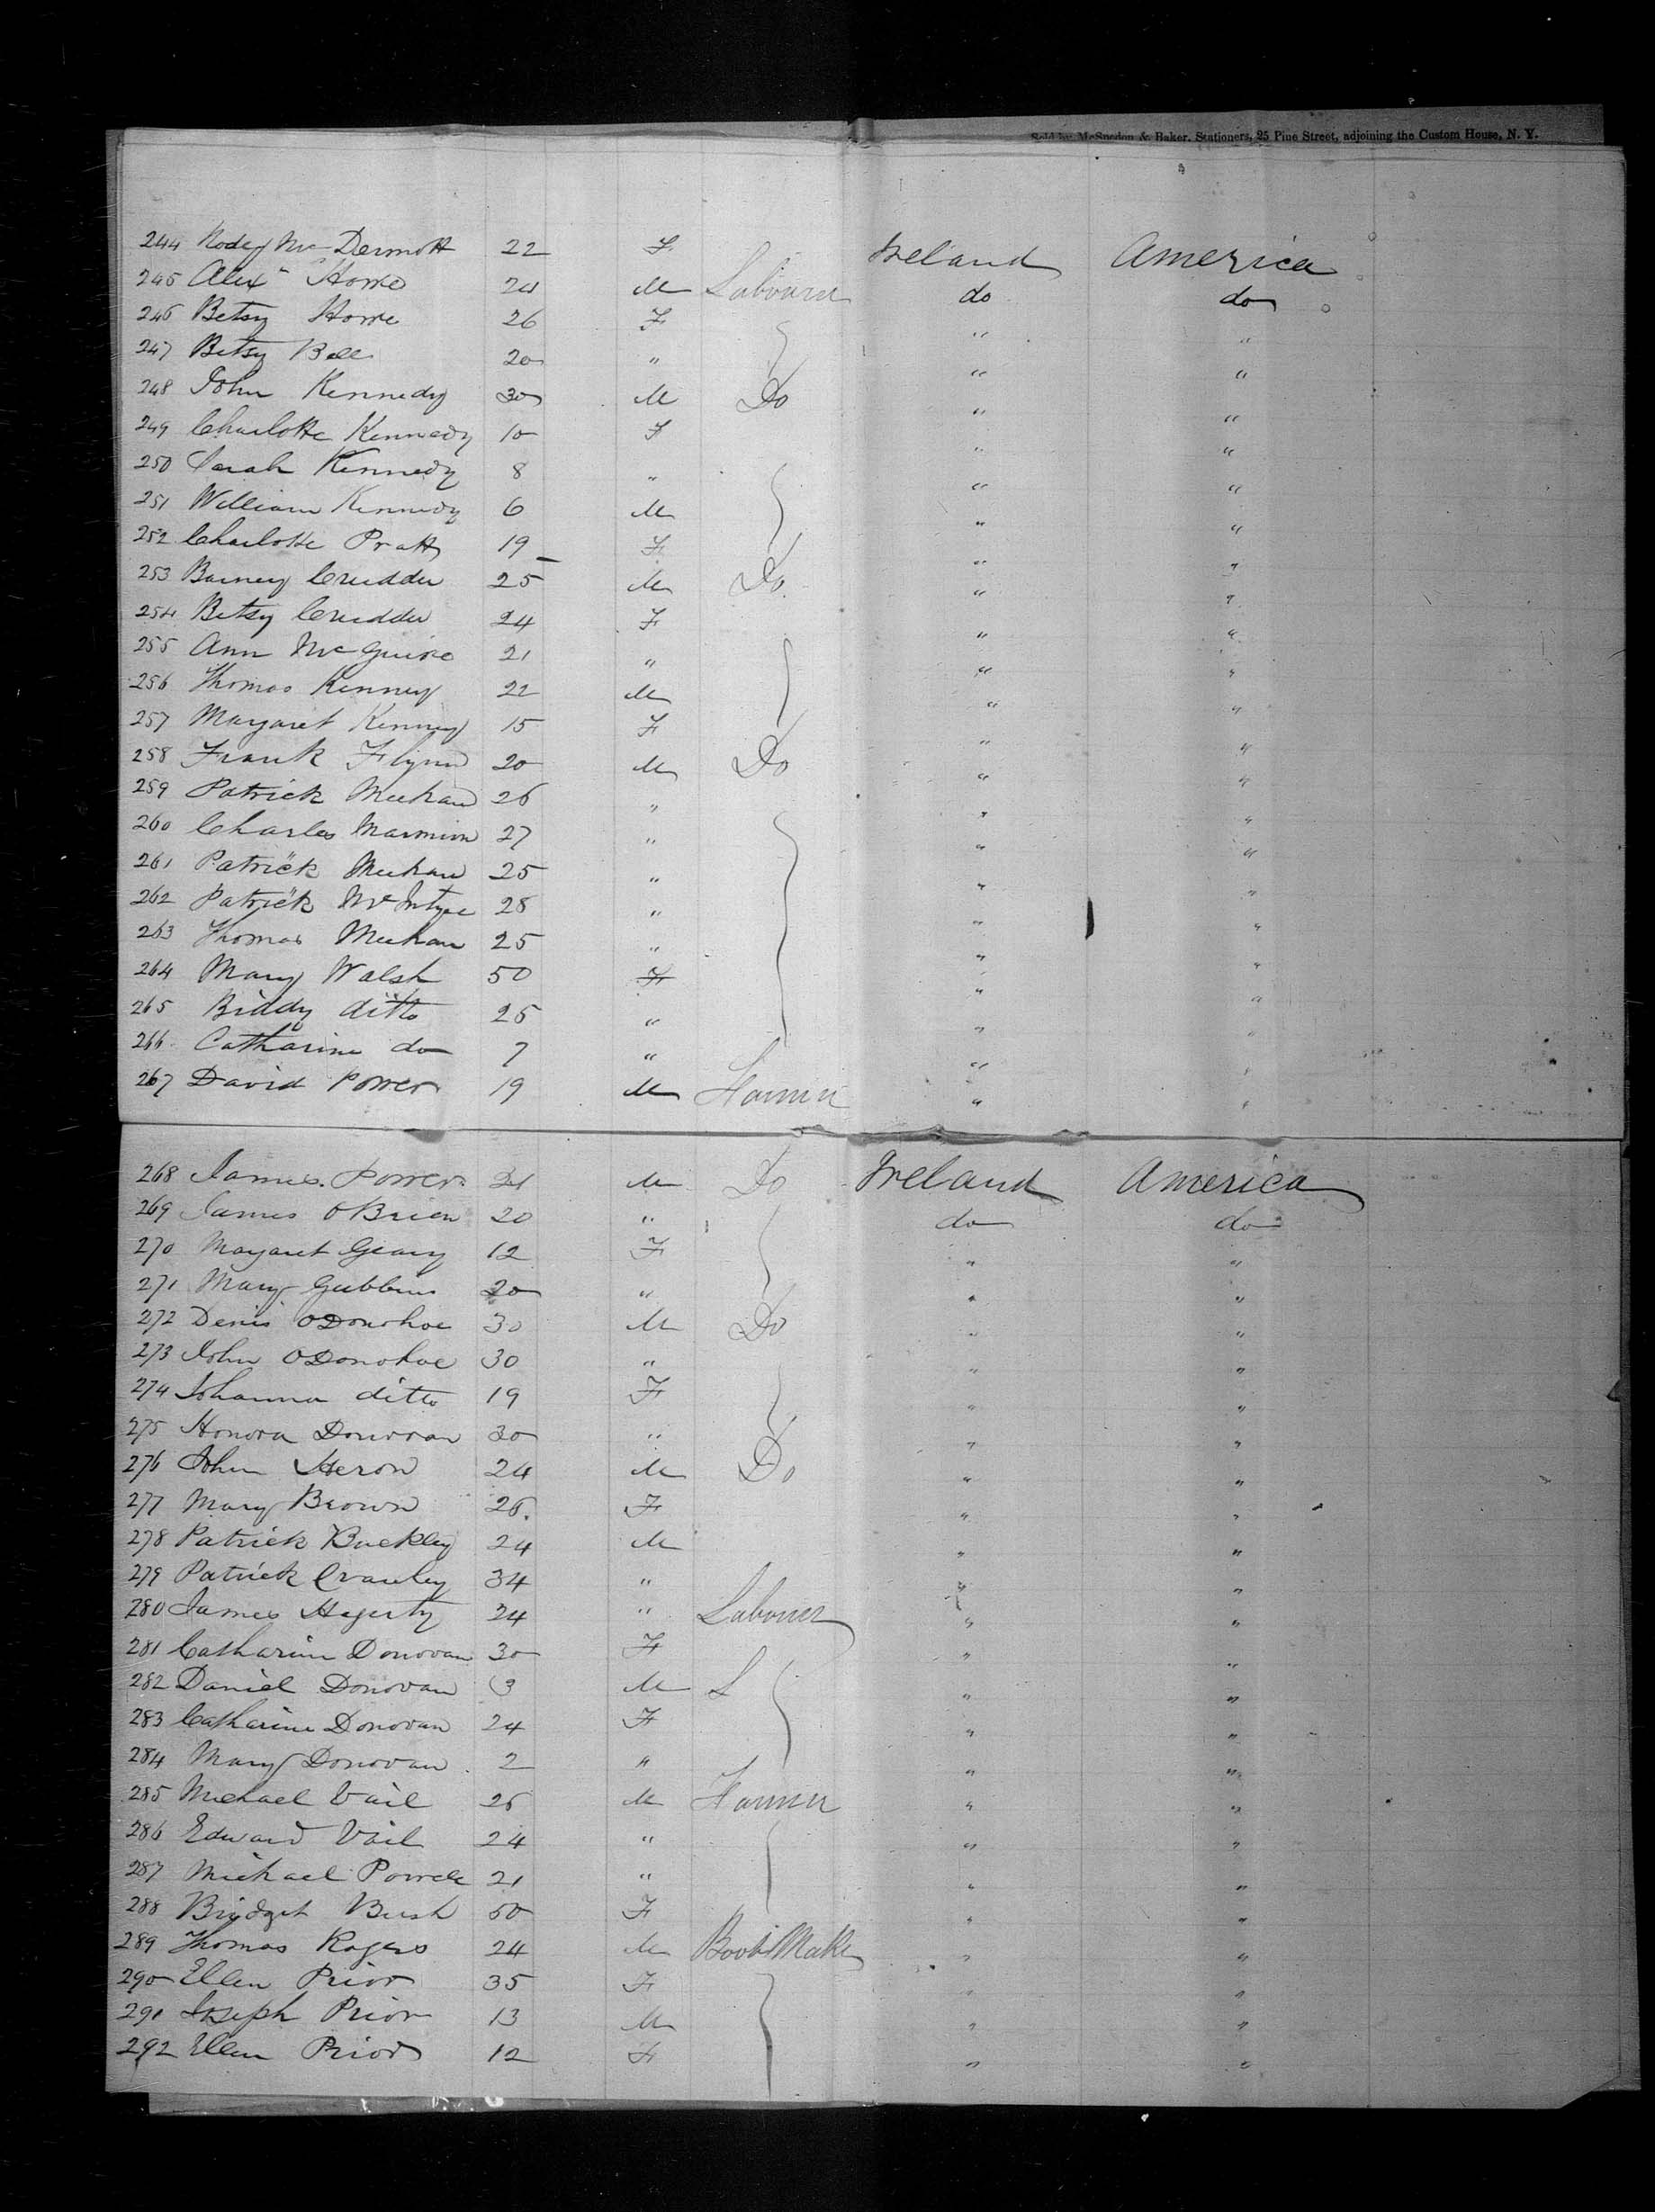 Sold by McSpedon & Baker, Stationers, 25 Pine Street, adjoining the Custom House, N. Y.
244 Rodey Mc Dermott 22 F Ireland America
245 Alex Howe 24 M Labourer do do
246 Betsy Howe 26 F " "
247 Betsy Bell 20 " " "
248 John Kennedy 30 M Do " "
249 Charlotte Kennedy 10 F " "
250 Sarah Kennedy 8 " " "
251 William Kennedy 6 M " "
252 Charlotte Pratt 19 F " "
253 Barney Crudder 25 M Do " "
254 Betsy Crudder 24 F " "
255 Ann McGuire 21 " " "
256 Thomas Kenney 22 M " "
257 Margaret Kenney 15 F " "
258 Frank Flynn 20 M Do " "
259 Patrick Meehan 26 " " "
260 Charles Marmion 27 " " "
261 Patrick Meehan 25 " " "
262 Patrick McIntyre 28 " " "
263 Thomas Meehan 25 " " "
264 Mary Walsh 50 F " "
265 Biddy ditto 25 " " "
266 Catharine do 7 " " "
267 David Power 19 M Farmer " "
268 James Power 21 M Do Ireland America
269 James OBrien 20 " do do
270 Margaret Geary 12 F " "
271 Mary Gubbins 20 " " "
272 Denis ODonohoe 30 M Do " "
273 John ODonohoe 30 " " "
274 Johanna ditto 19 F " "
275 Honora Donovan 30 " " "
276 John Heron 24 M Do " "
277 Mary Brown 26 F " "
278 Patrick Buckley 24 M " "
279 Patrick Crawley 34 " " "
280 James Hegerty 24 " Labourer " "
281 Catharine Donovan 30 F " "
282 Daniel Donovan 3 M L " "
283 Catharine Donovan 24 F " "
284 Mary Donovan 2 " " "
285 Michael Vail 26 M Farmer " "
286 Edward Vail 24 " " "
287 Michael Powell 21 " " "
288 Bridget Bush 50 F " "
289 Thomas Rogers 24 M Boot Maker " "
290 Ellen Prior 35 F " "
291 Joseph Prior 13 M " "
292 Ellen Prior 12 F " "